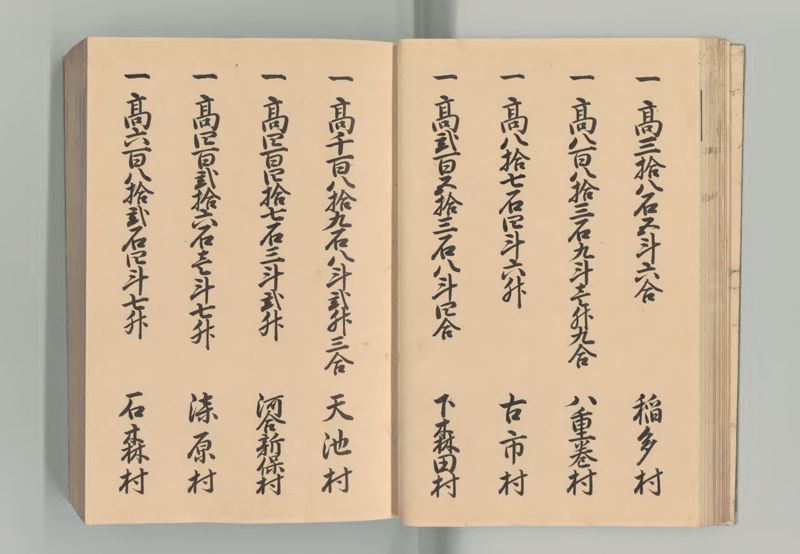 一 高三拾八石五斗六合 稲多村
一 高八百八拾三石九斗壱升九合 八重巻村
一 高八拾七石四斗六升 古市村
一 高弐百五拾三石八斗四合 下森田村
一 高千百八拾九石八斗弐升三合 天池村
一 高四百四拾七石三斗弐升 河合新保村
一 高四百弐拾六石壱斗七升 漆原村
一 高六百八拾弐石四斗七升 石森村